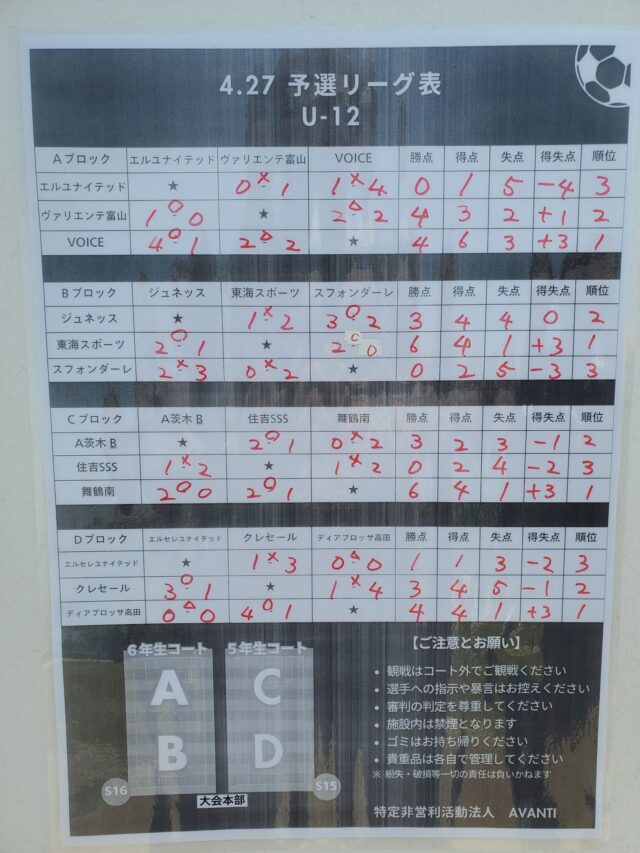 4.27 予選リーグ表
U-12
Aブロック エルユナイテッド ヴァリエンテ富山 VOICE 勝点 得点 失点 得失点 順位
エルユナイテッド ★ 0×1 1×4 0 1 5 -4 3
ヴァリエンテ富山 1○0 ★ 2△2 4 3 2 +1 2
VOICE 4○1 2△2 ★ 4 6 3 +3 1
Bブロック ジュネッス 東海スポーツ スフォンダーレ 勝点 得点 失点 得失点 順位
ジュネッス ★ 1×2 3○2 3 4 4 0 2
東海スポーツ 2○1 ★ 2○0 6 4 1 +3 1
スフォンダーレ 2×3 0×2 ★ 0 2 5 -3 3
Cブロック A茨木 B 住吉SSS 舞鶴南 勝点 得点 失点 得失点 順位
A茨木 B ★ 2○1 0×2 3 2 3 -1 2
住吉SSS 1×2 ★ 1×2 0 2 4 -2 3
舞鶴南 2○0 2○1 ★ 6 4 1 +3 1
Dブロック エルセレユナイテッド クレセール ディアブロッサ高田 勝点 得点 失点 得失点 順位
エルセレユナイテッド ★ 1×3 0△0 1 1 3 -2 3
クレセール 3○1 ★ 1×4 3 4 5 -1 2
ディアブロッサ高田 0△0 4○1 ★ 4 4 1 +3 1
6年生コート 5年生コート
A C
B D
S16 S15
大会本部
【ご注意とお願い】
• 観戦はコート外でご観戦ください
• 選手への指示や暴言はお控えください
• 審判の判定を尊重してください
• 施設内は禁煙となります
• ゴミはお持ち帰りください
• 貴重品は各自で管理してください
※ 紛失・破損等一切の責任は負いかねます
特定非営利活動法人 AVANTI